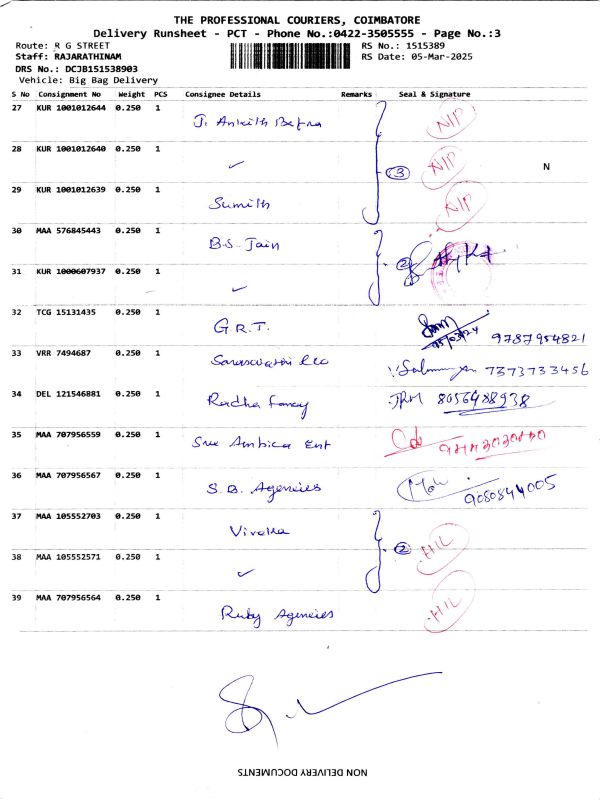 THE PROFESSIONAL COURIERS, COIMBATORE
Delivery Runsheet - PCT - Phone No.:0422-3505555 - Page No.:3
Route: R G STREET RS No.: 1515389
Staff: RAJARATHINAM RS Date: 05-Mar-2025
DRS No.: DCJB151538903
Vehicle: Big Bag Delivery
S No Consignment No Weight PCS Consignee Details Remarks Seal & Signature
27 KUR 1001012644 0.250 1 J. Ankith NIP
28 KUR 1001012640 0.250 1 ✓ 3 NIP N
29 KUR 1001012639 0.250 1 Sumith NIP
30 MAA 576845443 0.250 1 B.S. Jain
31 KUR 1000607937 0.250 1 ✓ 2
32 TCG 15131435 0.250 1 G.R.T. 9787954821
33 VRR 7494687 0.250 1 7373733456
34 DEL 121546881 0.250 1 Radha Fancy 8056488938
35 MAA 707956559 0.250 1 Sree Ambica Ent
36 MAA 707956567 0.250 1 S.B. Agencies 9080844005
37 MAA 105552703 0.250 1 2 HIL
38 MAA 105552571 0.250 1 ✓
39 MAA 707956564 0.250 1 Ruby Agencies HIL
NON DELIVERY DOCUMENTS